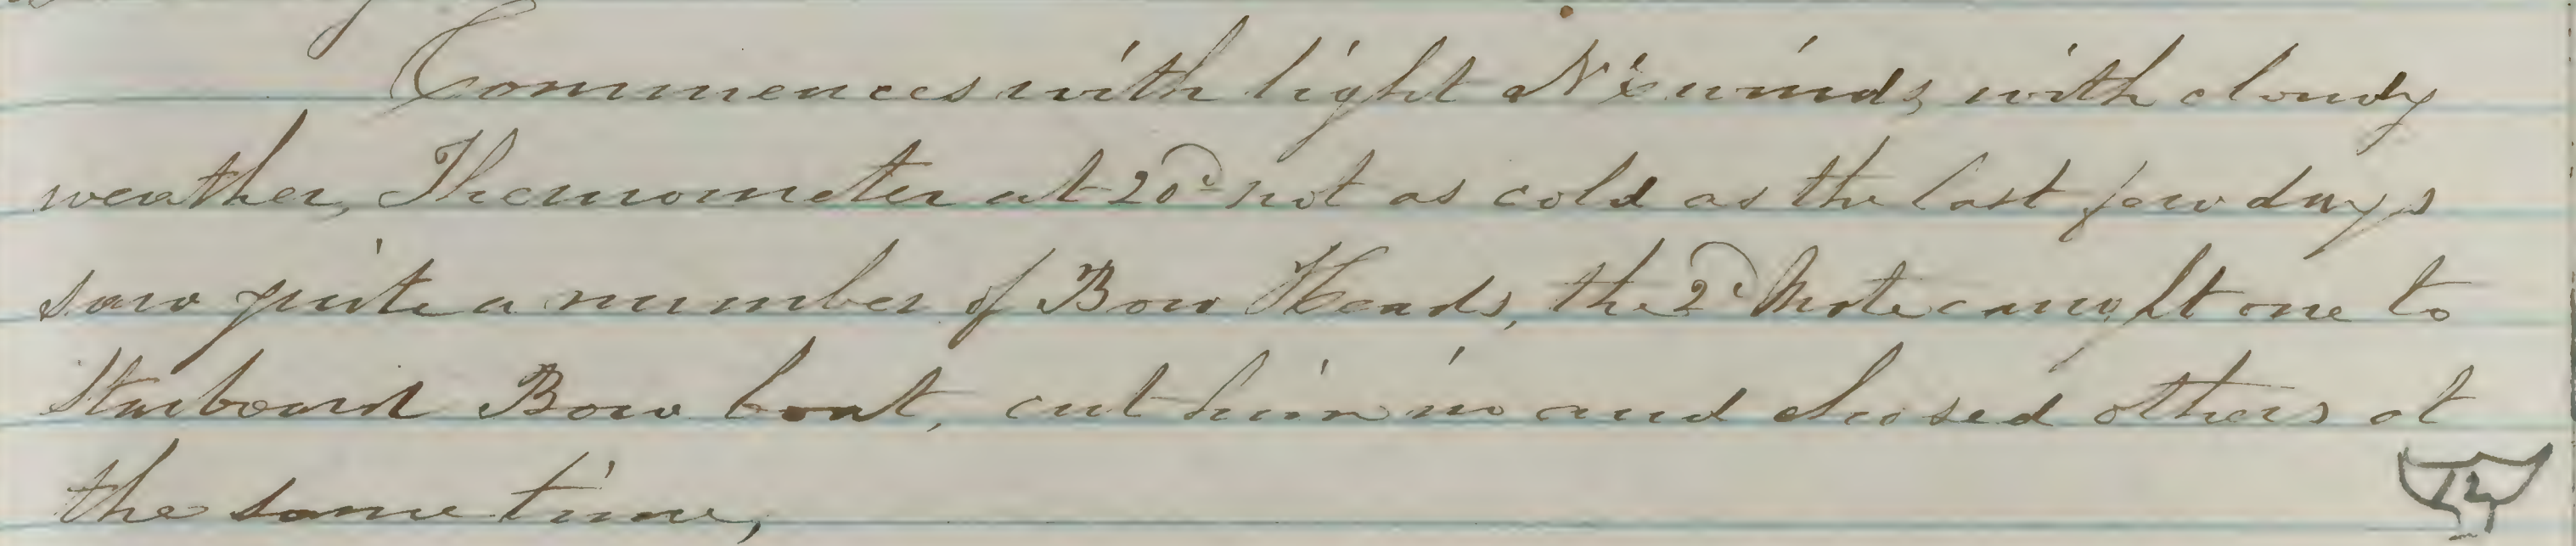 Commences with light N E winds, with cloudy
weather, Thermometer at 20° not as cold as the last few days
saw quite a number of Bow Heads, the 2d Mate caught one to
Starboard Bow boat, cut him in and chased others at
the same time,
12